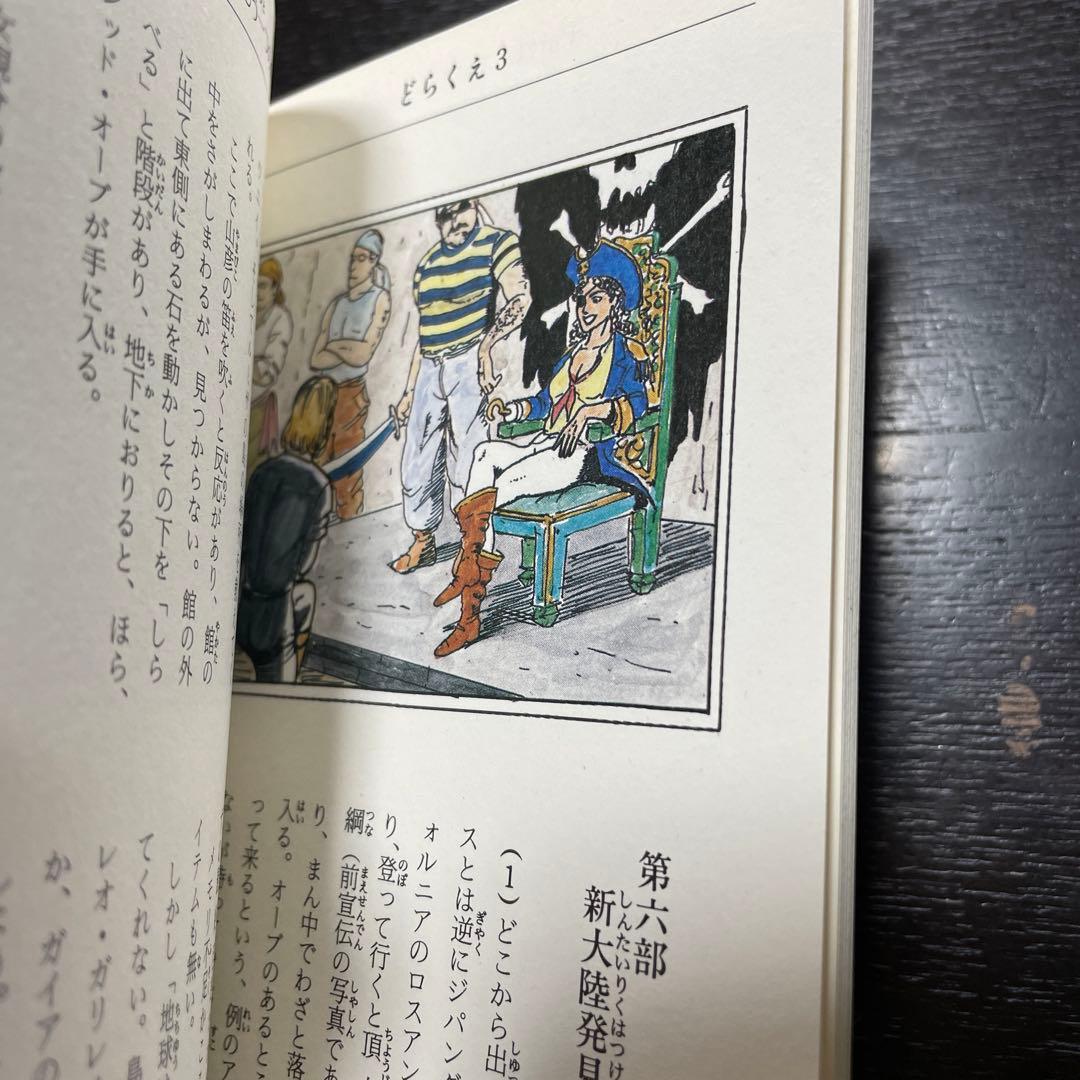 どらくえ3
第六部
新大陸発見
(1)どこから出
スとは逆にジパング
ォルニアのロスアン
り、登って行くと頂
綱(前宣伝の写真であ
り、まん中でわざと落
入る。オーブのあるとこ
って来るという、例のア
イテムも無い。
しかし「地球
てくれない。
レオ・ガリレ
か、ガイアの
れる。
ここで山彦の笛を吹くと反応があり、館の
中をさがしまわるが、見つからない。館の外
に出て東側にある石を動かしその下を「しら
べる」と階段があり、地下におりると、ほら、
ッド・オーブが手に入る。